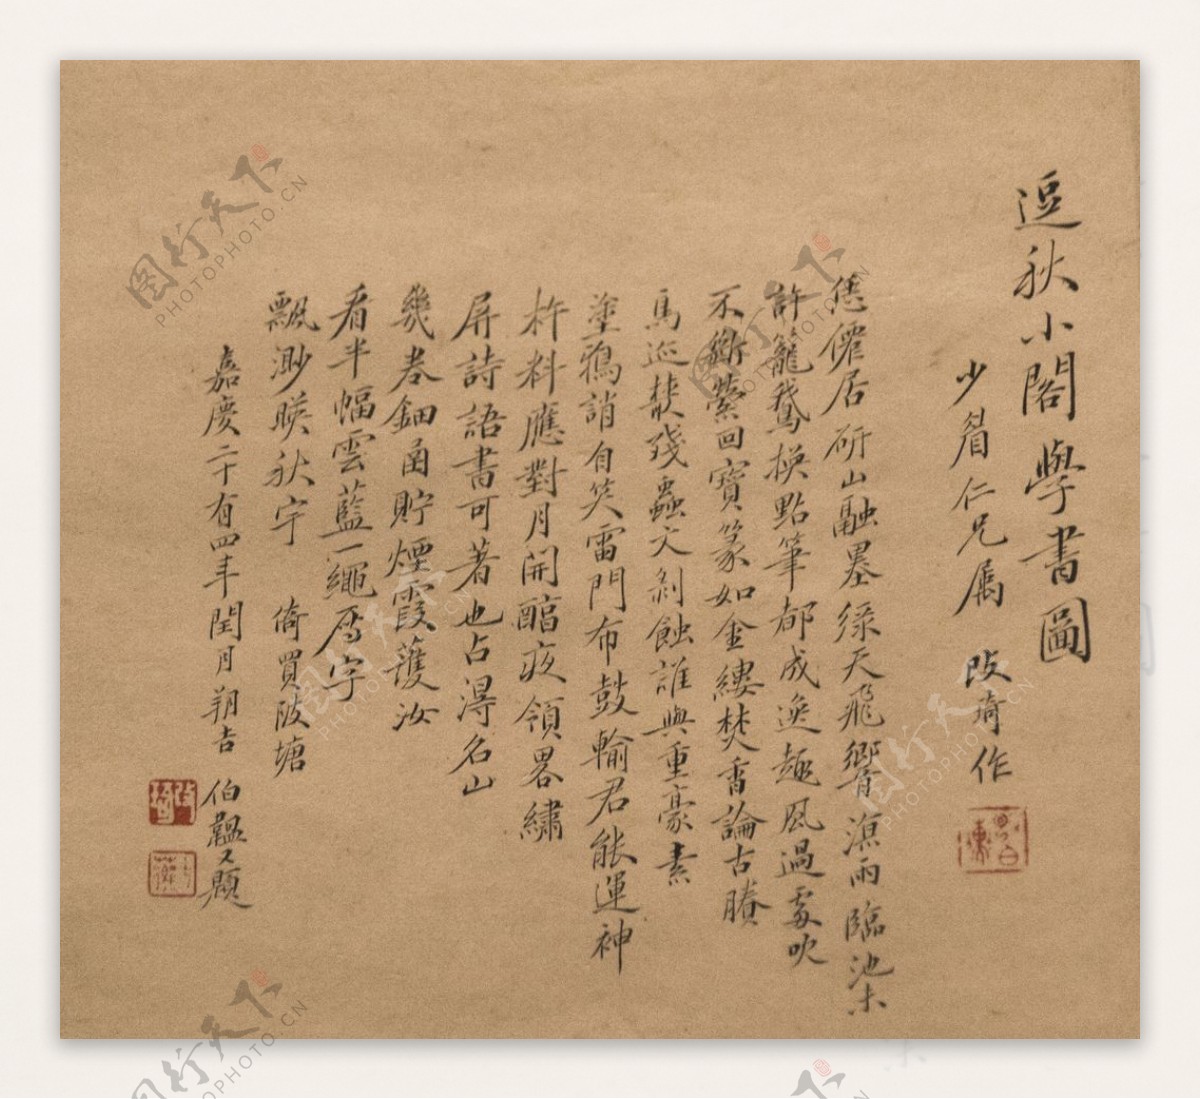 逗秋小閣學書圖
少眉仁兄属 改琦作
恁僊居研山融墨綠天飛響涼雨臨池柒未
許籠鵝換點筆都成逸趣風過處吹
不斷縈回寶篆如金縷焚香論古賸
馬巡獎殘蟲文剝蝕誰與重豪素
塗鴉誚自笑雷門布鼓輸君能運神
杵料應對月開醅夜領畧繡
屏詩語書可著也占得名山
幾卷鈿函貯煙霞護汝
看半幅雲藍一繩雁字
飄渺暎秋宇 倚買陂塘
嘉慶二十有四年閏月朔吉 伯韞又題
图行天下
PHOTOPHOTO.CN